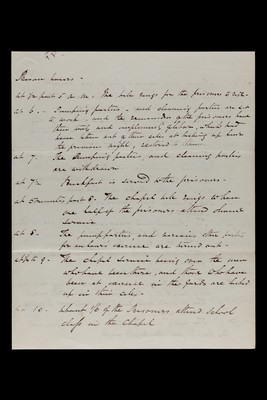 Prison hours -
at 1/4 past 5 a.m. The bell rings for the prisoners to rise.
at 6. - Pumping parties, and cleaning parties are set
to work, and the remainder of the prisoners have
their tools and implements given, which had
been taken out of their cells at locking up hour
the previous night, restored to them.
at 7. The Pumping parties, and cleaning parties
are withdrawn
at 7 1/2 Breakfast is served to the prisoners.
at 5 minutes past 8. The chapel bell rings to have
one half of the prisoners attend divine
service
at 8. The pump parties, and exercise other parties
for an hours exercise are turned out -
at 1/4 to 9 - The chapel service being over the men
who have been there, and those who have
been at exercise in the yards are locked
up in their cells.
at 10. about 1/6 of the Prisoners attend School
class in the Chapel